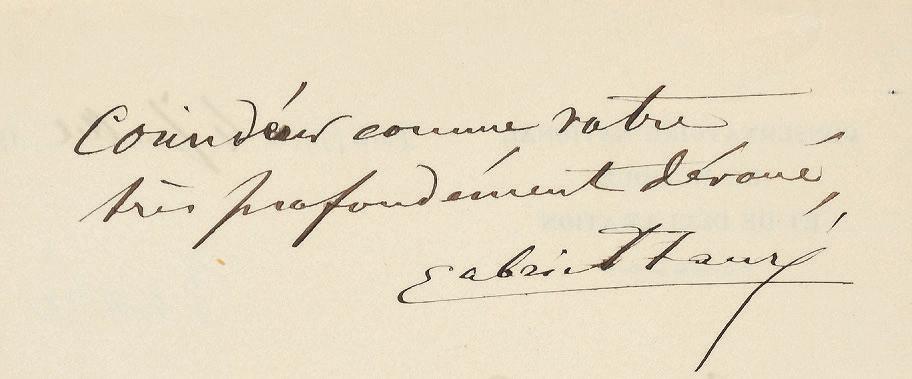 Considérer comme votre
très profondément dévoué,
Gabriel Fauré